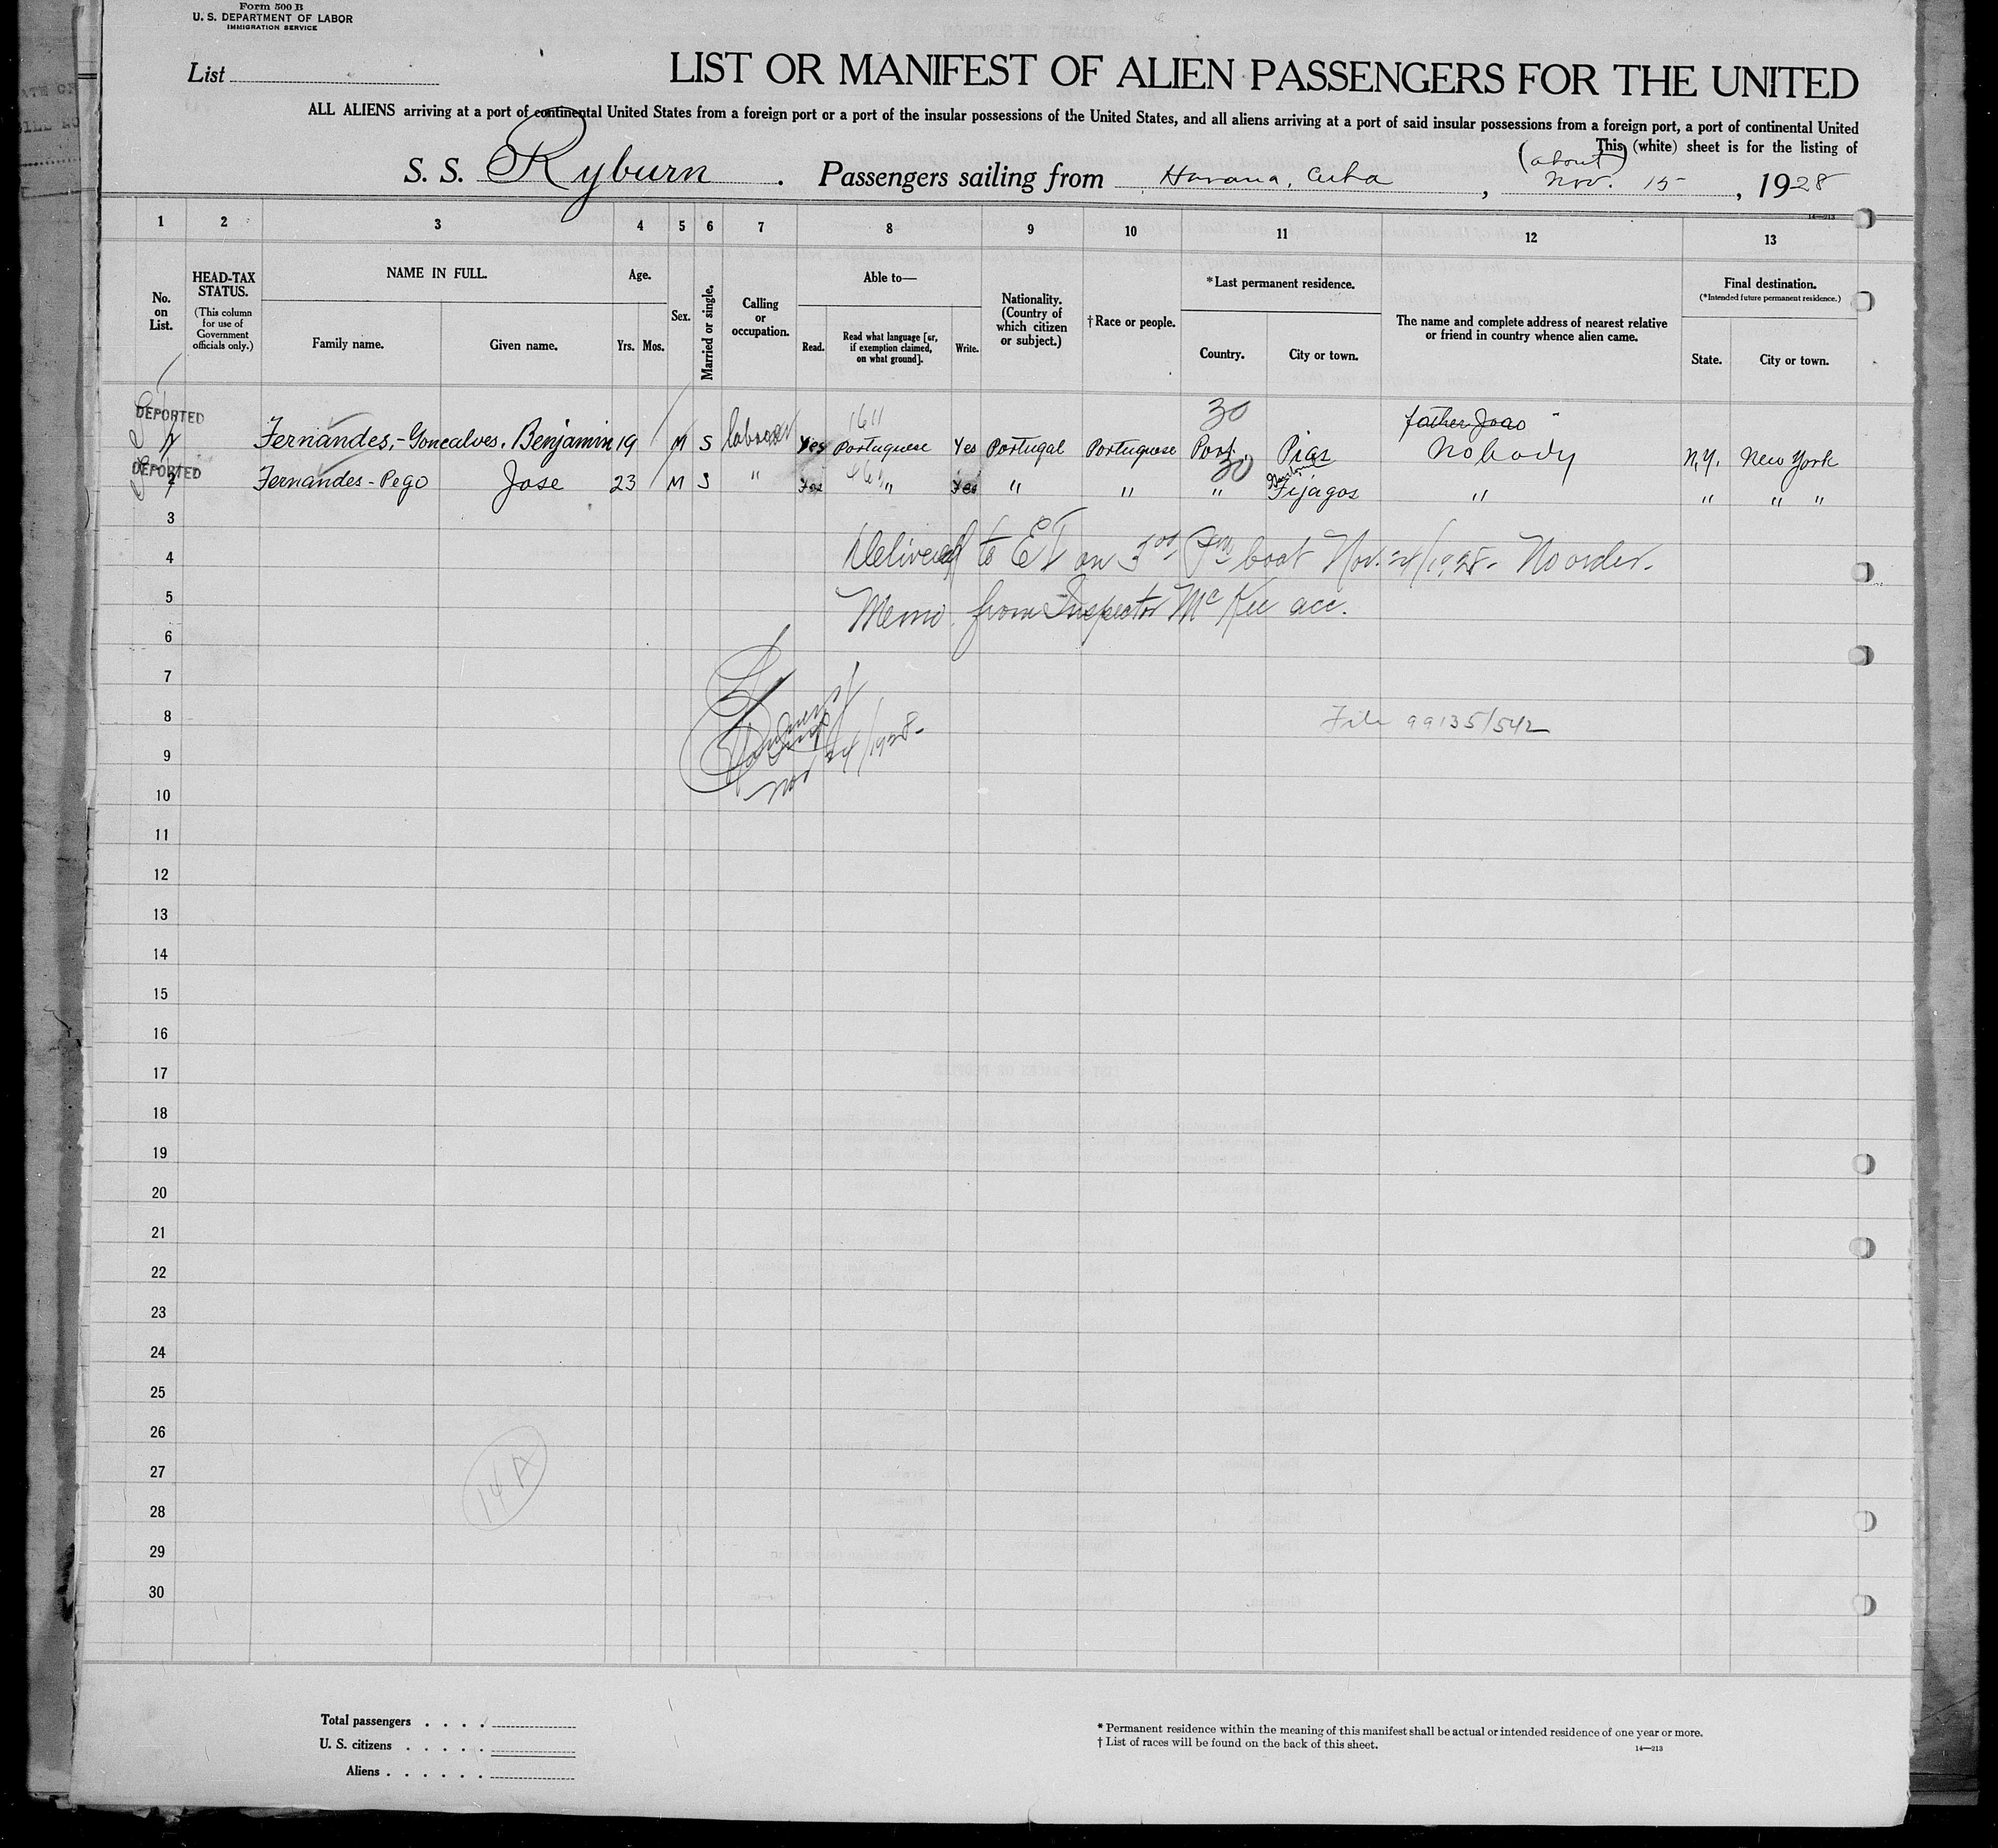 Form 500 B
U. S. DEPARTMENT OF LABOR
IMMIGRATION SERVICE
List
LIST OR MANIFEST OF ALIEN PASSENGERS FOR THE UNITED
ALL ALIENS arriving at a port of continental United States from a foreign port or a port of the insular possessions of the United States, and all aliens arriving at a port of said insular possessions from a foreign port, a port of continental United
This (white) sheet is for the listing of
(about)
S. S. Ryburn . Passengers sailing from Havana, Cuba , Nov. 15 , 1928
14—213
1 2 3 4 5 6 7 8 9 10 11 12 13
No. on List.
HEAD-TAX STATUS.
(This column for use of Government officials only.)
NAME IN FULL.
Family name. Given name.
Age.
Yrs. Mos.
Sex.
Married or single.
Calling or occupation.
Able to—
Read. Read what language [or, if exemption claimed, on what ground]. Write.
Nationality. (Country of which citizen or subject.)
† Race or people.
*Last permanent residence.
Country. City or town.
The name and complete address of nearest relative or friend in country whence alien came.
Final destination.
(*Intended future permanent residence.)
State. City or town.
DEPORTED 1611 30 father Joao
1 Fernandes,-Goncalves, Benjamin 19 M S laborer Yes Portuguese Yes Portugal Portuguese Port. Pias Nobody N.Y. New York
DEPORTED 30
2 Fernandes-Pego Jose 23 M S " Yes " Yes " " " Fijagos " " " "
3
Delivered to EI on 3rd boat Nov. 24/1928- No order.
4
5
Memo from Inspector McKee acc.
6
7
8
File 99135/542
9
Nov 24/1928-
10
11
12
13
14
15
16
17
18
19
20
21
22
23
24
25
26
27
14 A
28
29
30
Total passengers . . . .
U. S. citizens . . . . .
Aliens . . . . . .
* Permanent residence within the meaning of this manifest shall be actual or intended residence of one year or more.
† List of races will be found on the back of this sheet.
14—213